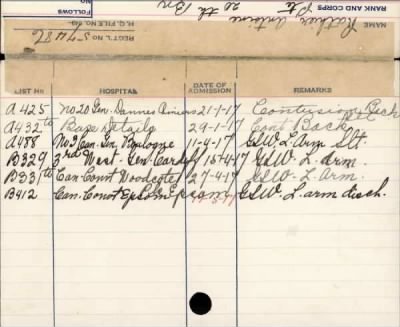 RANK AND CORPS
NAME
Pte
28th Bn
FOLLOWS
H.Q. FILE No. 649
REGT'L No.
LIST No HOSPITAL DATE OF ADMISSION REMARKS
A425 No 20 Gen. Dannes Camiers 21-1-17 Contusion Back
A432 Base Details 29-1-17 Cont Back
A458 No 2 Can. Gen. Boulogne 11-4-17 GSW. L. Arm Slt.
B329 3rd West. Gen. Cardiff 15-4-17 GSW. L. Arm.
B331 Can. Convt Woodcote 27-4-17 GSW. L. Arm.
B412 Can. Convt Epsom Epsom GSW. L arm disch.